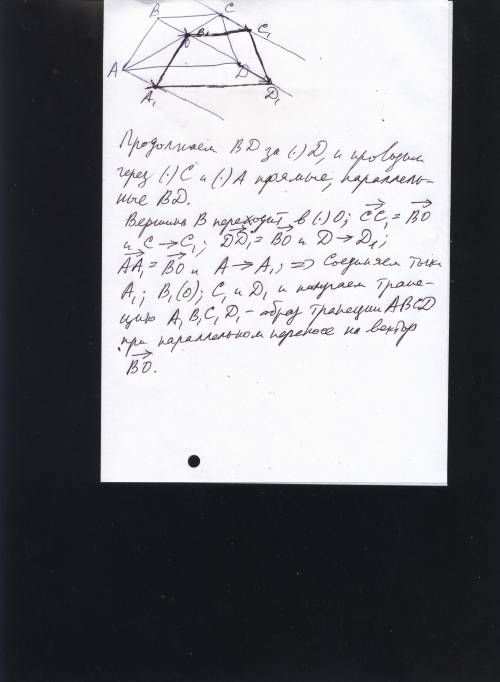 B C
B₁ C₁
O
A D
A₁ D₁
Продолжаем BD за (·) D, и проводим
через (·) C и (·) A прямые, параллель-
ные BD.
Вершина B переходит в (·) O; CC₁ = BO
и C → C₁; DD₁ = BO и D → D₁;
AA₁ = BO и A → A₁; => Соединяем точки
A₁; B₁(O); C₁ и D₁ и получаем трапе-
цию A₁B₁C₁D₁ - образ трапеции ABCD
при параллельном переносе на вектор
BO.